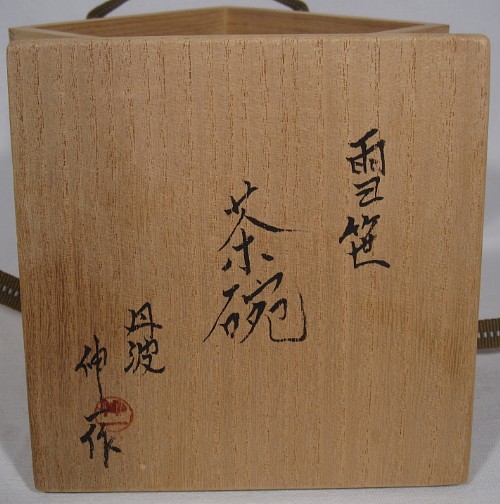 雪笹
茶碗
丹波
伸作